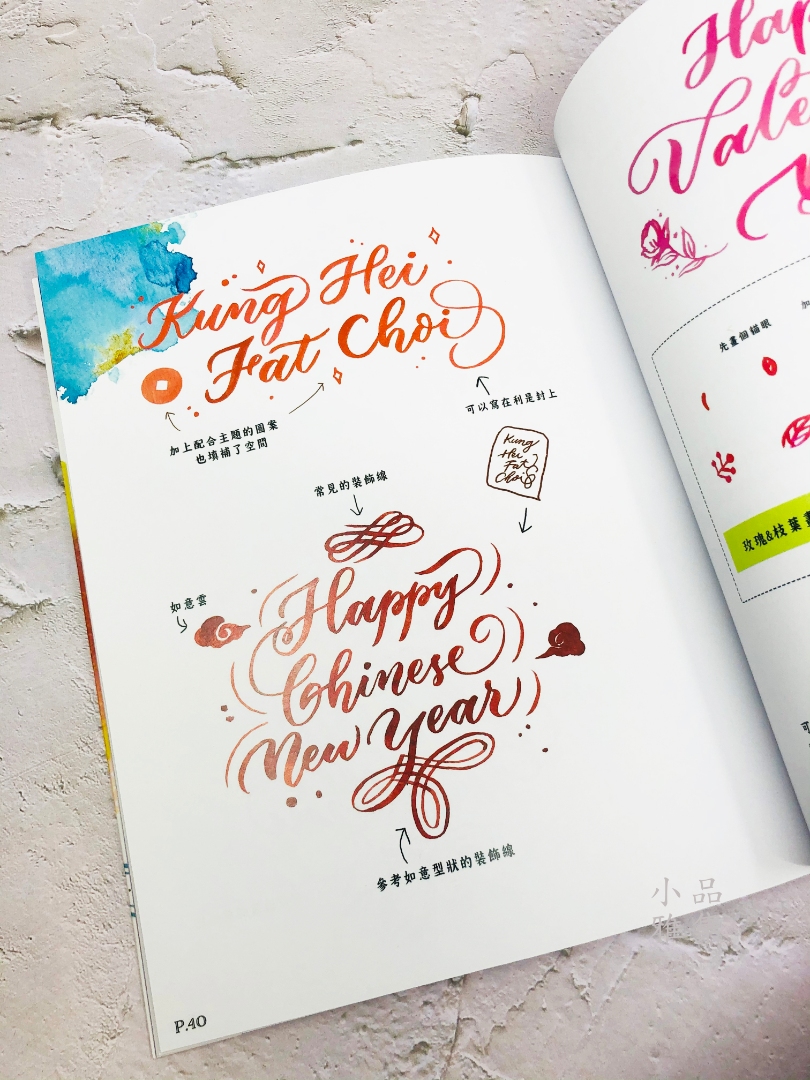 Kung Hei
Fat Choi
加上配合主題的圖案
也填補了空間
可以寫在利是封上
Kung
Hei
Fat
Choi
常見的裝飾線
如意雲
Happy
Chinese
New Year
參考如意型狀的裝飾線
P.40
Hap
Vale
先畫個貓眼
玫瑰&枝葉
小品
雅